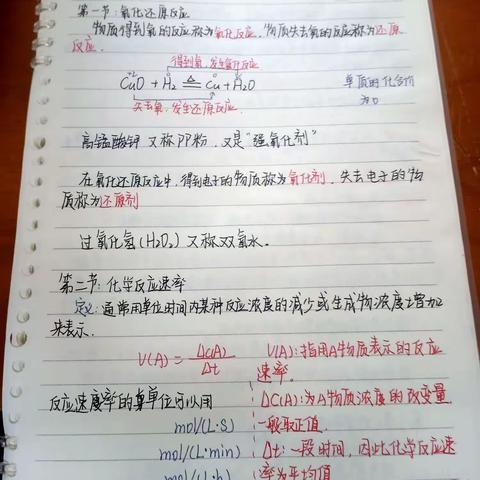 第一节：氧化还原反应
物质得到氧的反应称为氧化反应，物质失去氧的反应称为还原
反应。
得到氧，发生氧化反应
+2 0 0 +1
CuO + H₂ ≜ Cu + H₂O
失去氧，发生还原反应
单质的化合价
为0
高锰酸钾 又称PP粉，又是“强氧化剂”
在氧化还原反应中，得到电子的物质称为氧化剂，失去电子的物
质称为还原剂
过氧化氢(H₂O₂)又称双氧水。
第二节：化学反应速率
定义：通常用单位时间内某种反应浓度的减少或生成物浓度增加
来表示.
V(A) = Δc(A)/Δt
V(A):指用A物质表示的反应
速率.
反应速度率的单位可以用
ΔC(A):为A物质浓度的改变量.
mol/(L·S)
一般取正值.
mol/(L·min)
Δt:一段时间，因此化学反应速
mol/(L·h)
率为平均值